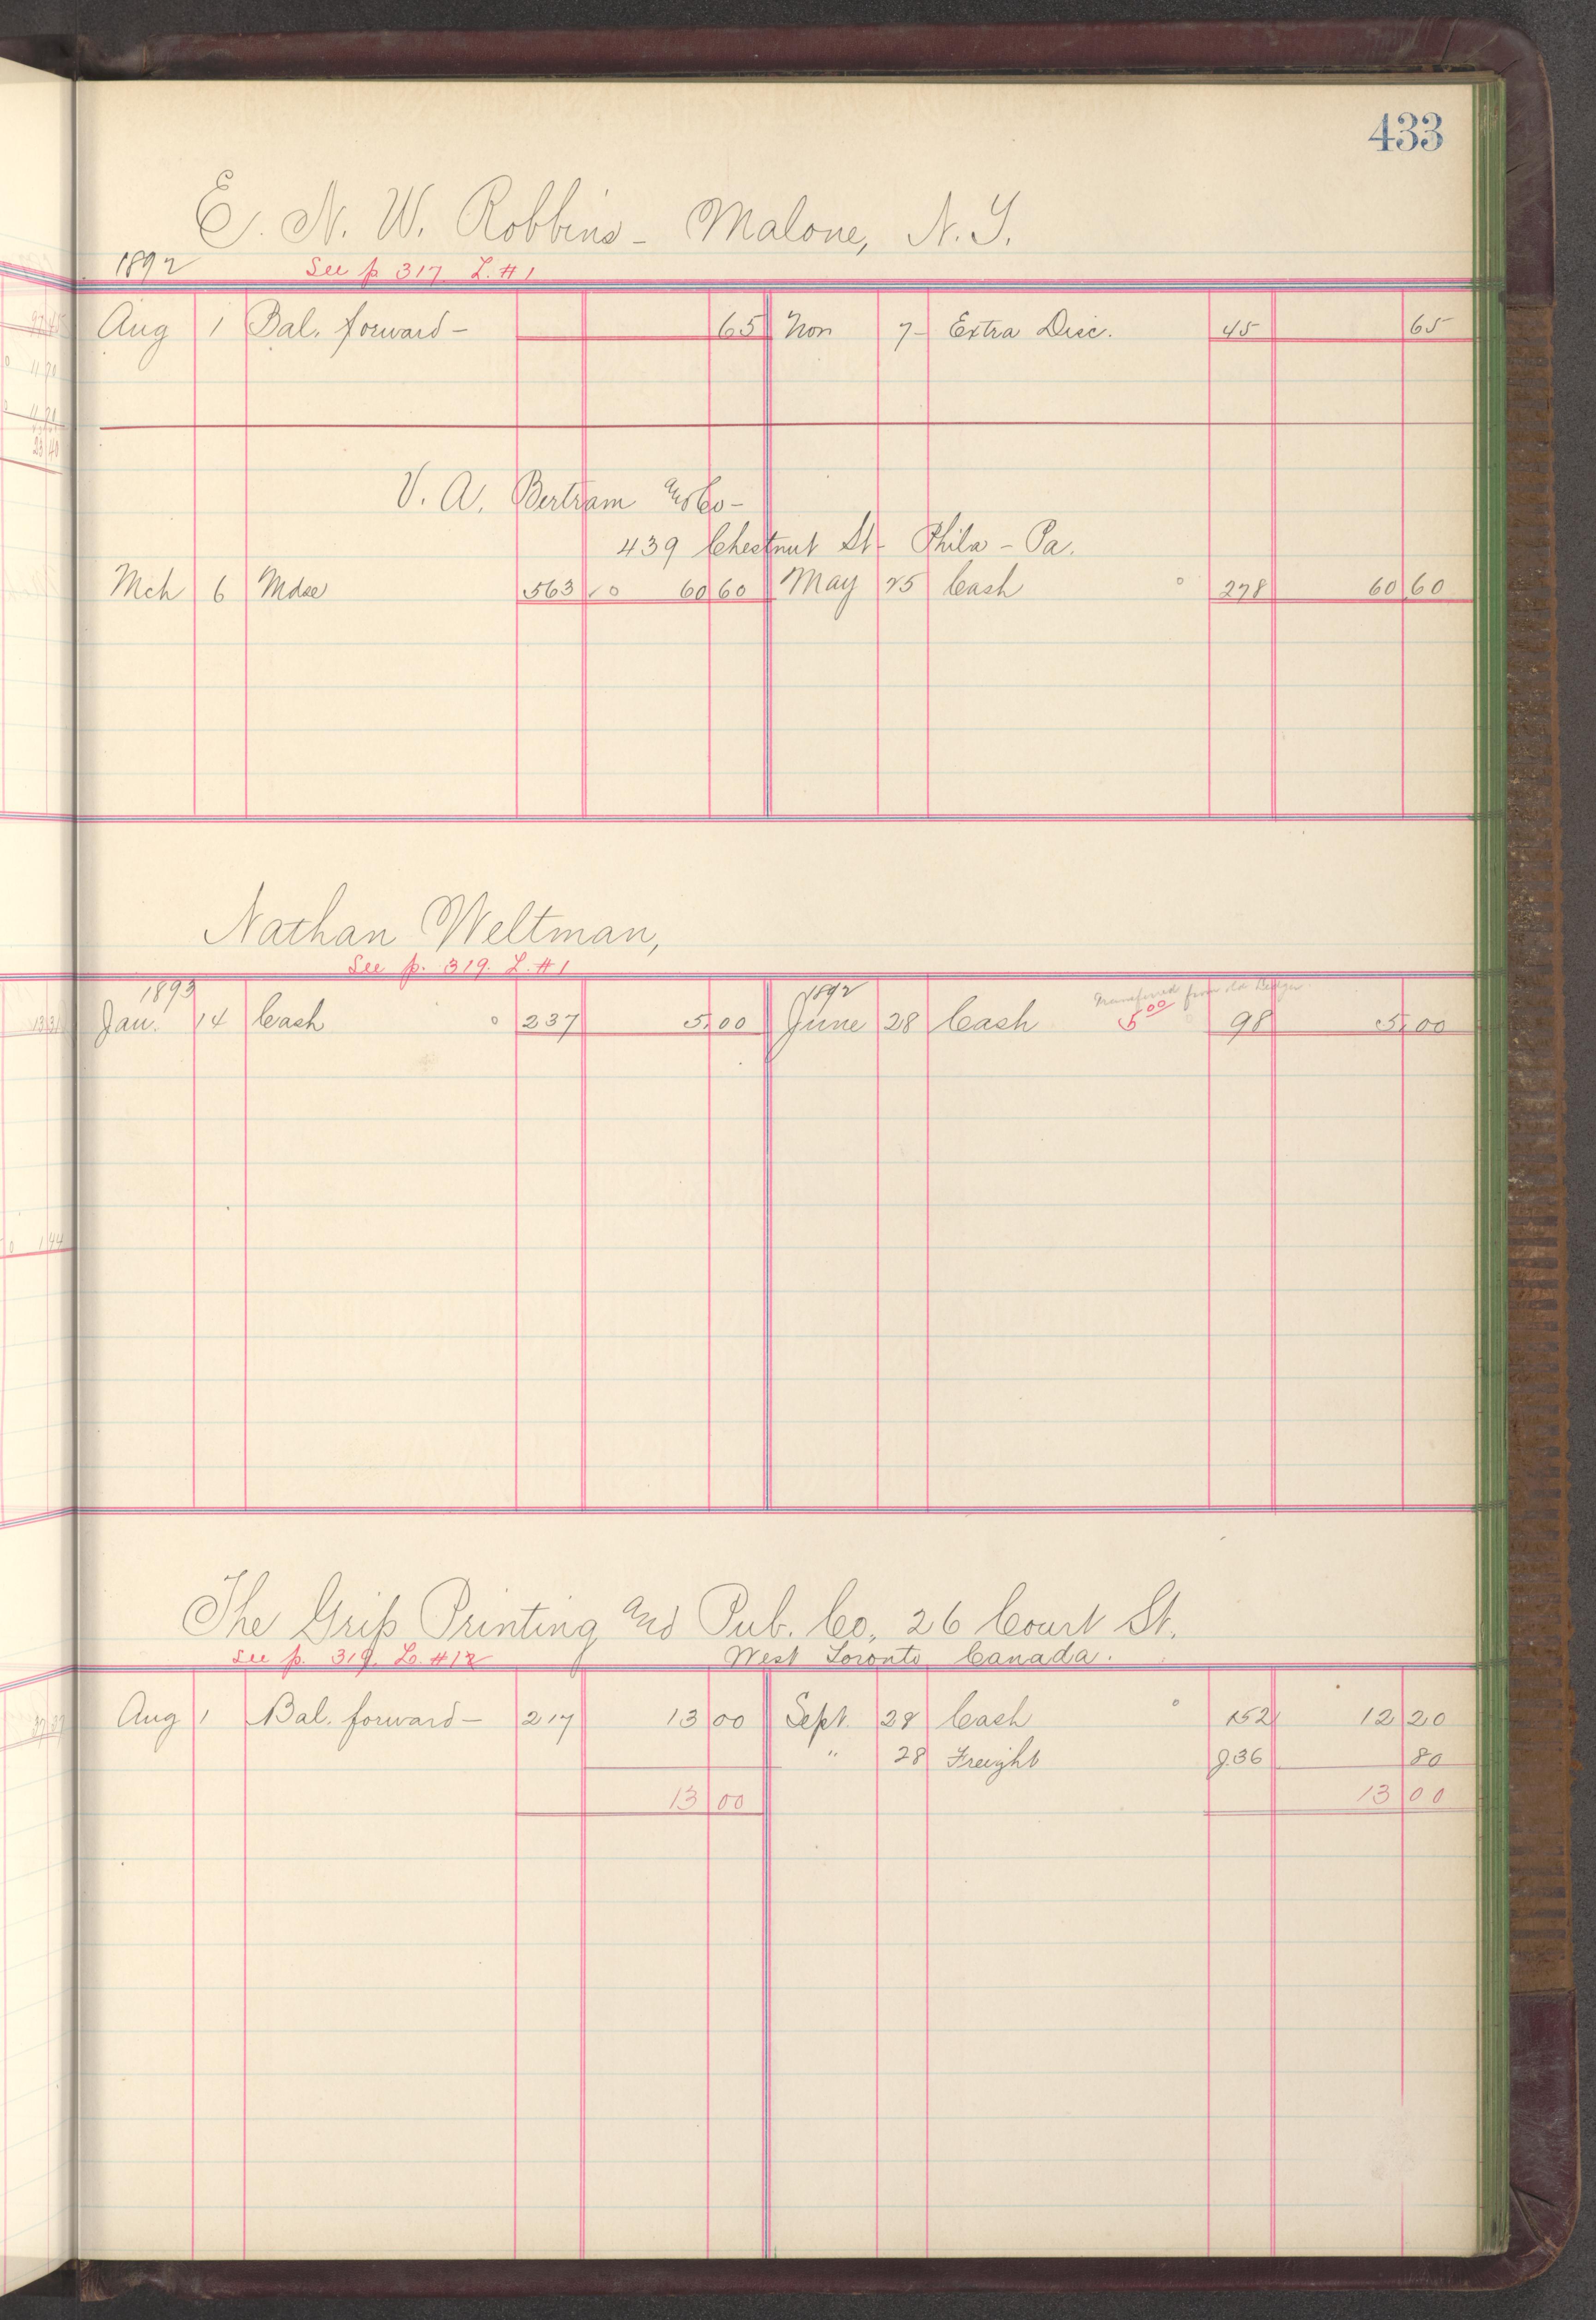 433
E. N. W. Robbins - Malone, N.Y.
1892 See p 317 L. #1
Aug 1 Bal. forward - 65 Nov 7 - Extra Disc. 45 65
V. A. Bertram and Co -
439 Chestnut St - Phila - Pa.
Mch 6 Mdse 563 60 60 May 25 Cash 278 60 60
Nathan Weltman,
See p. 319. L. #1
1893 1892 Transferred from old Ledger
Jan. 14 Cash 237 5 00 June 28 Cash 5 00 98 5 00
The Grip Printing and Pub. Co. 26 Court St.
See p. 319. L. #12 West Toronto Canada.
Aug 1 Bal. forward - 217 13 00 Sept. 28 Cash 152 12 20
" 28 Freight J.36 80
13 00 13 00